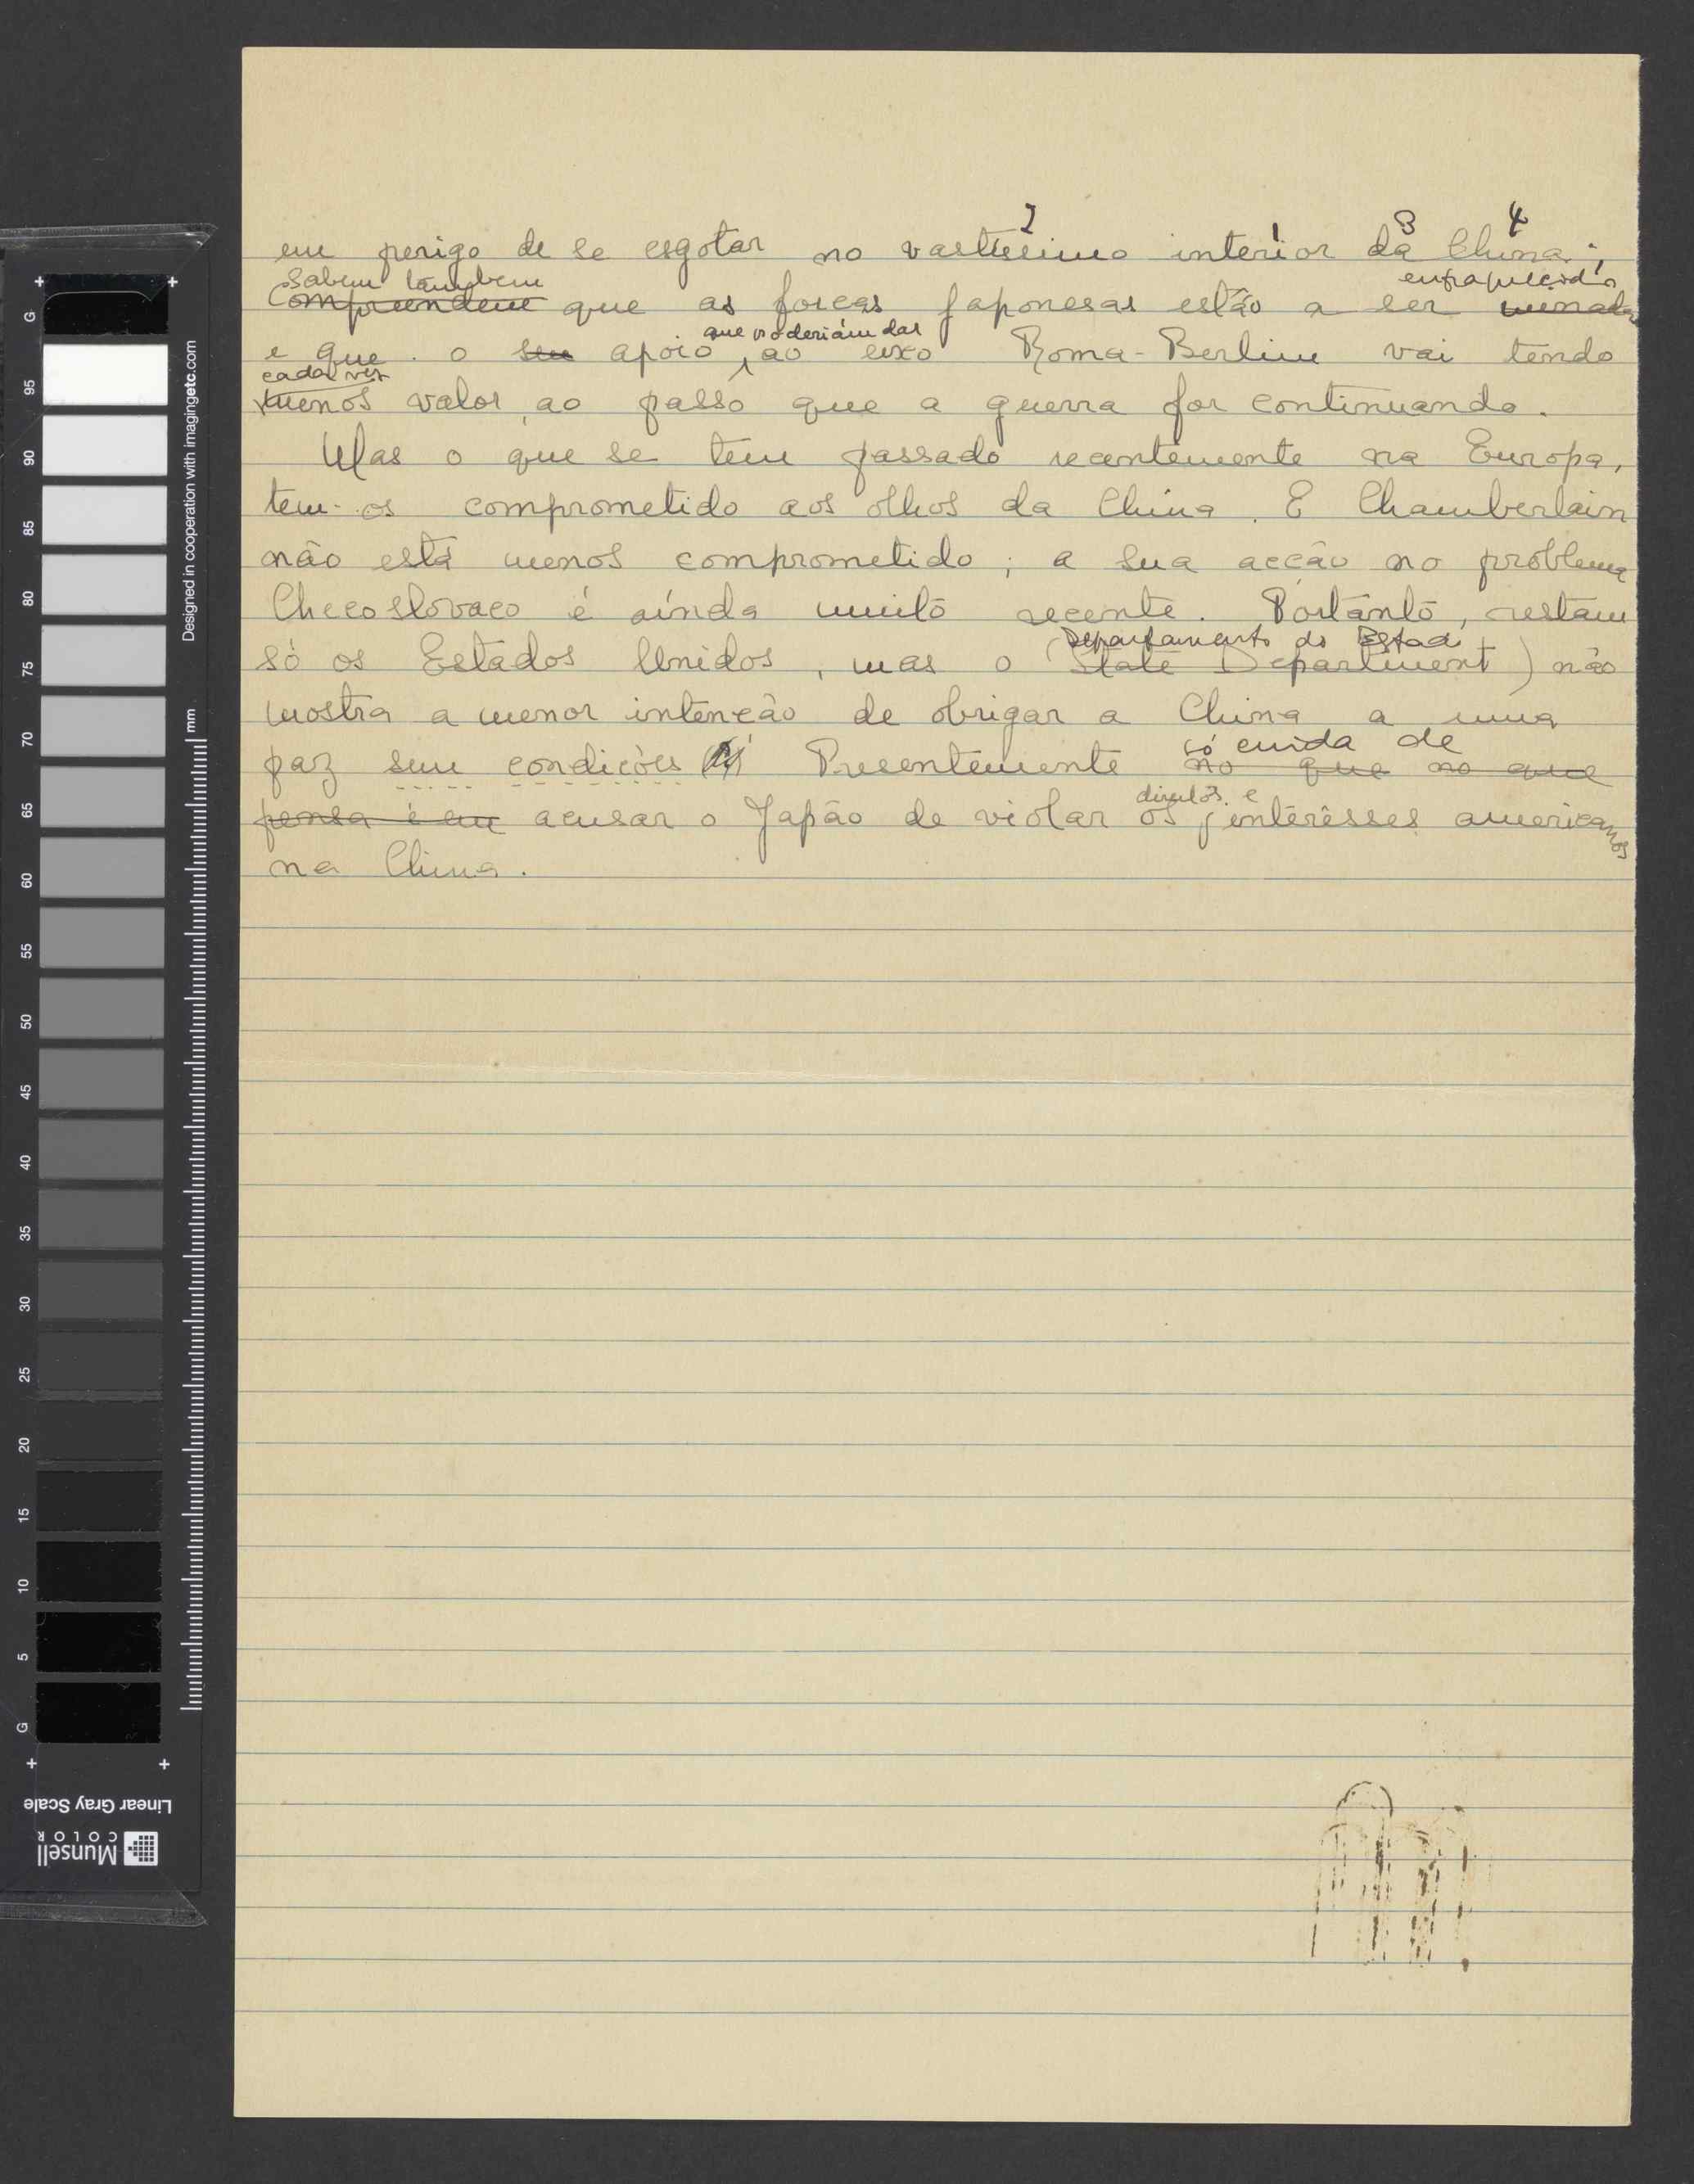 2 1 3 4
em perigo de se esgotar no vastissimo interior da China;
Sabem tambem enfraquecidas
Compreendem que as forças japonesas estão a ser minadas
que poderiam dar
e que o seu apoio ao eixo Roma-Berlim vai tendo
cada vez
menos valor ao passo que a guerra for continuando.
Mas o que se tem passado recentemente na Europa,
tem-os comprometido aos olhos da China. E Chamberlain
não está menos comprometido; a sua acção no problema
Checoslovaco é ainda muito recente. Portanto, restam
Departamento do Estado
só os Estados Unidos, mas o (State Department) não
mostra a menor intenção de obrigar a China a uma
só cuida de
paz sem condições Presentemente no que no que
direitos e
pensa é em acusar o Japão de violar os interêsses americanos
na China.
G
95
90
85
80
75
70
65
60
55
50
45
40
35
30
25
20
15
10
5
G
mm
Designed in cooperation with imagingetc.com
Linear Gray Scale
Munsell
COLOR